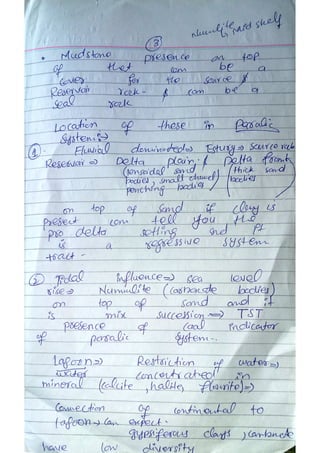 Nummulite, mid shelf
③
• Mudstone presence on top
of that can be a
cover for the source &
Reservoir rock - & can be a
seal rock
Location of these in Paralic
System:-
① Fluvial dominated → Estuary → Source rock
Reservoir → Delta plain, & Delta front
(tonsoidal sand bodies, small channel pinching bodies) (thick sand bodies)
on top of sand if clay is
present can tell you the
pro delta setting and it
is a regressive system
tract.
② Tidal influence → sea level
rise → Nummulite (carbonate bodies)
on top of sand and if
is mix succession → TST
presence of coal indicator
of parralic system..
Lagoon → Restriction of water →
concentrated in
mineral (calcite, halite, flourite) →
Connection of continental to
lagoon → can expect.
gypsiferous clays, carbonate
have low diversity